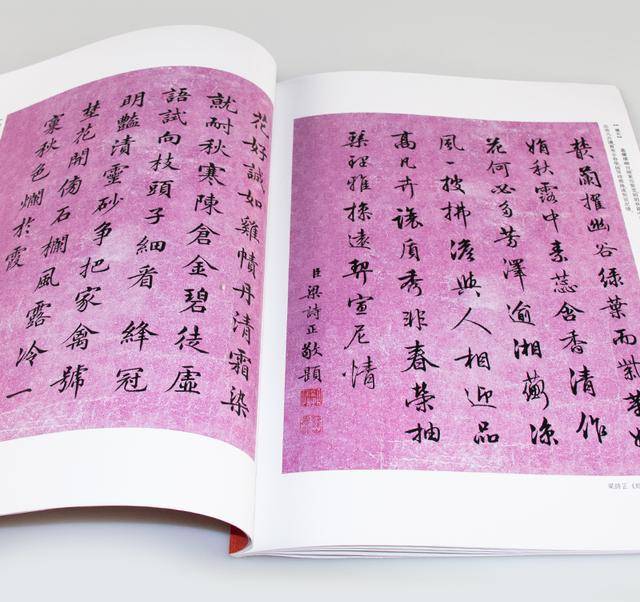 花好誠如雞幘丹清霜染
就耐秋寒陳倉金碧徒虛
語試向枝頭子細看 絳冠
明豔漬靈砂爭把家禽號
埜花開傍石欄風露冷一
窠秋色爛於霞
爾擢幽谷綠葉而紫莖便
娟秋露中素蕊含香清作
花何必多芳澤逾湘蘅涼
風一披拂澹與人相迎品
高凡卉讓質秀非春榮抽
琴理雅操遠契宣尼情
臣梁詩正敬題
梁詩正